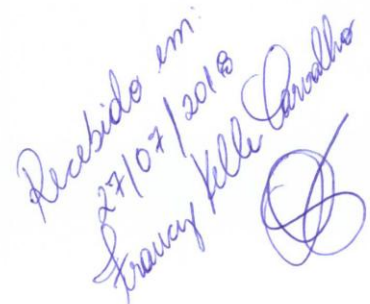 Recebido em:
27/07/2018
Francy Kelle Carvalho